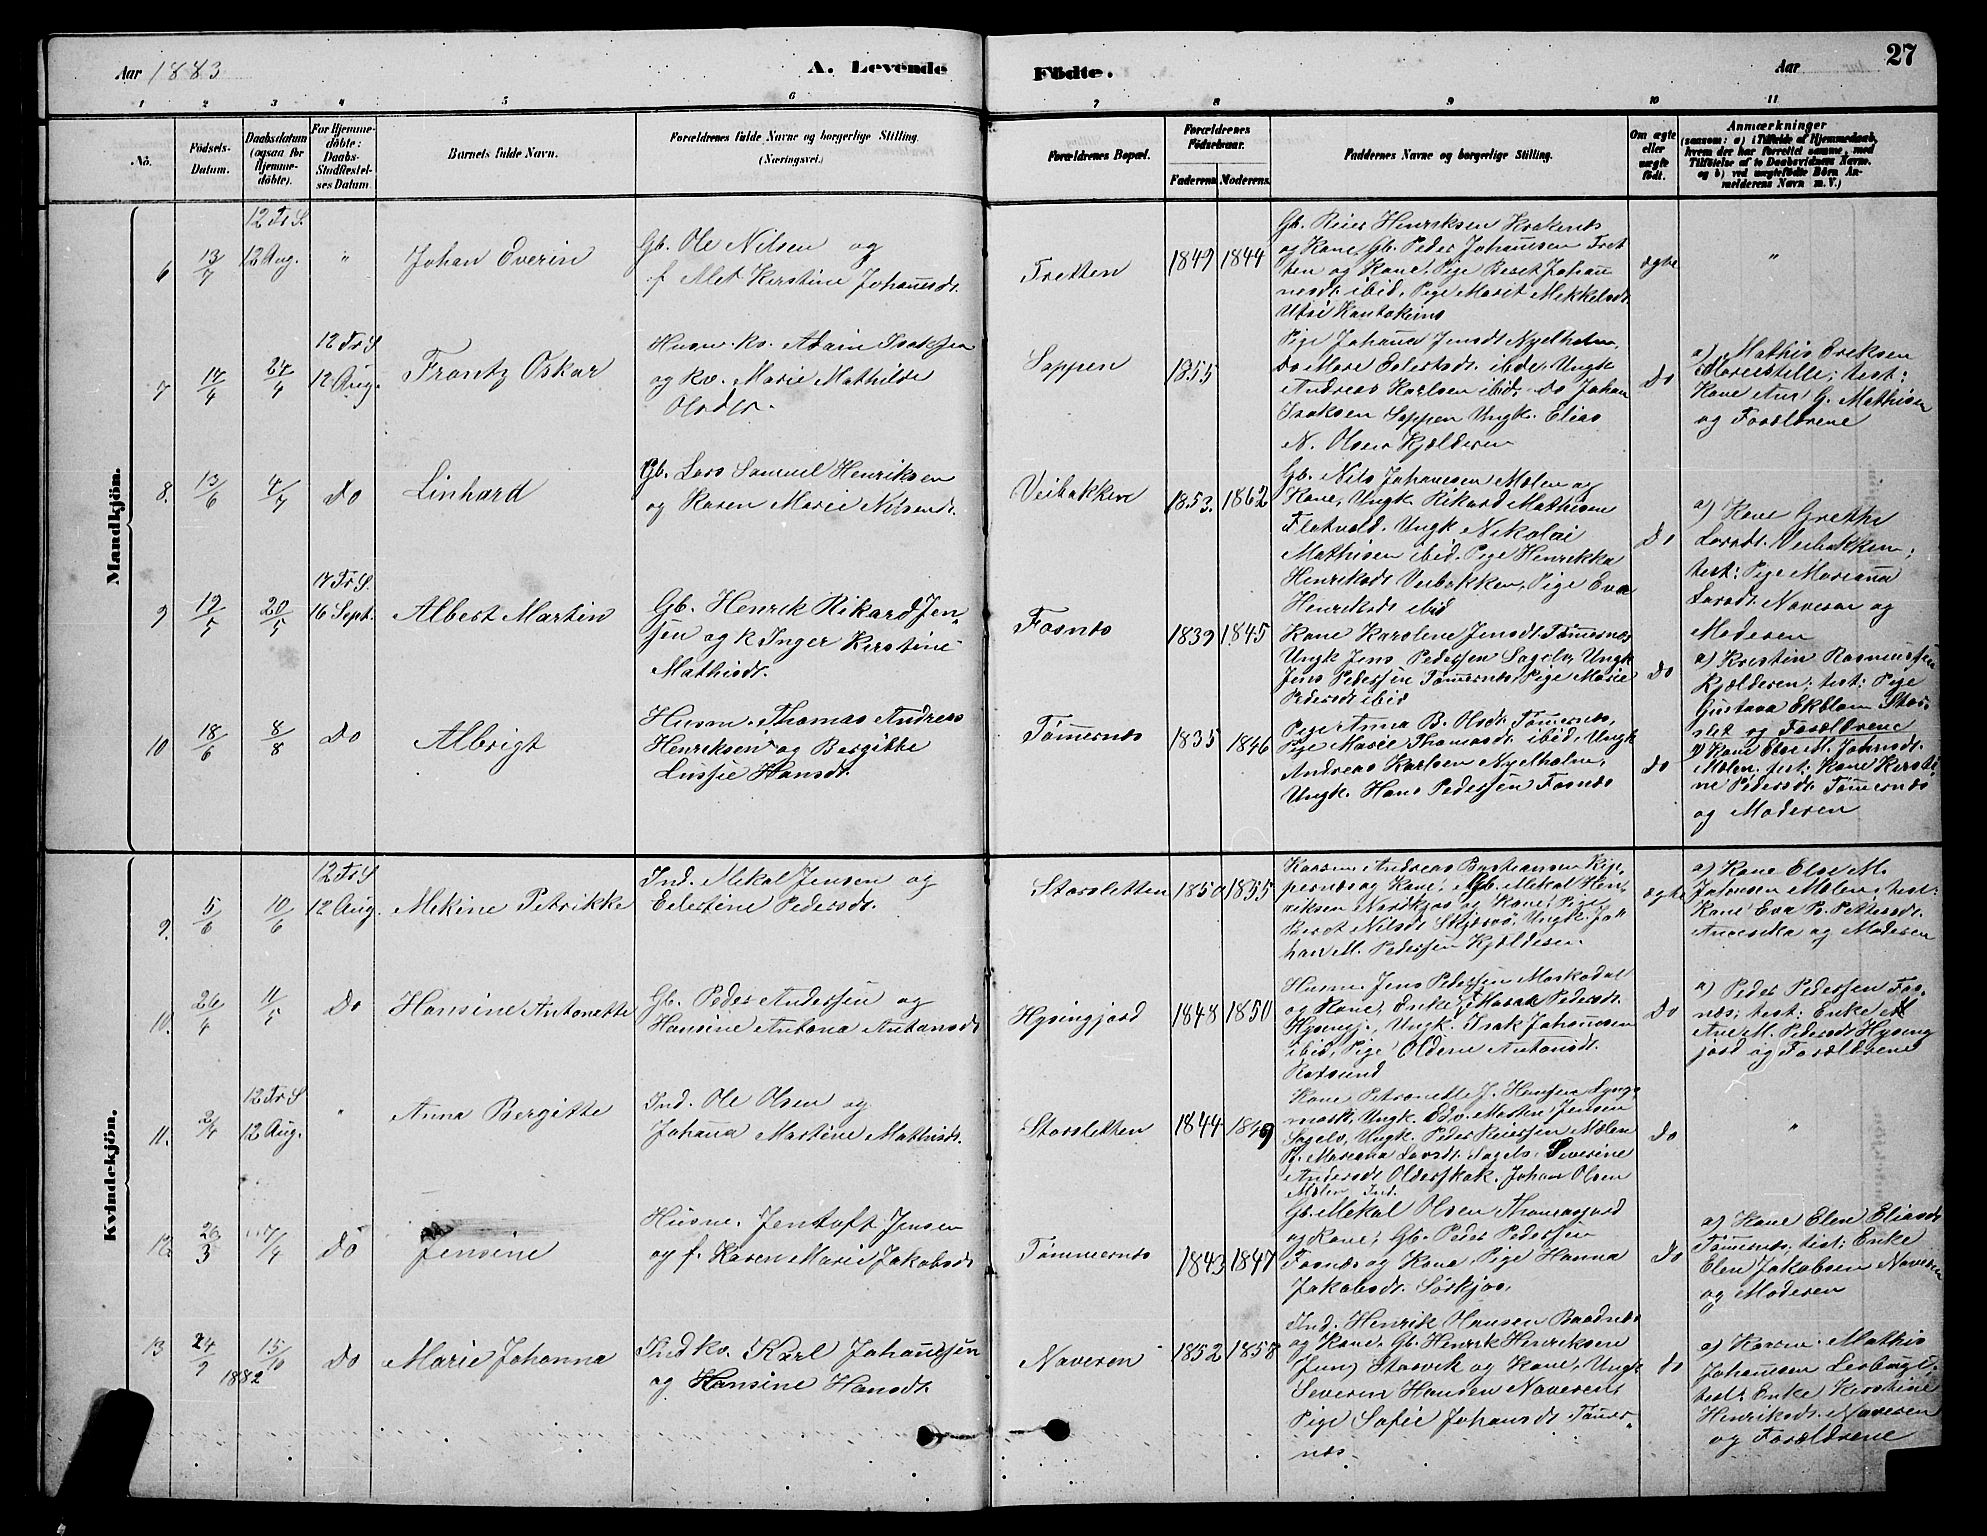 Aar 1883
A. Levende
Födte.
Aar
27
1 2 3 4 5 6 7 8 9 10 11
No.
Födsels-
Datum.
Daabsdatum
(ogsaa for
Hjemme-
döbte).
For Hjemme-
döbte:
Daabs-
Stadfæstel-
ses Datum.
Barnets fulde Navn.
Forældrenes fulde Navne og borgerlige Stilling.
(Næringsvei.)
Forældrenes Bopæl.
Forældrenes
Födselsaar.
Faderens Moderens.
Faddernes Navne og borgerlige Stilling.
Om ægte
eller
uægte
födt.
Anmærkninger
(saasom: a) i Tilfælde af Hjemmedaab,
hvem der har forrettet samme, med
Tilföielse af to Daabsvidners Navne.
og b) ved uægtefödte Börn An-
melderens Navn m. V.)
Mandkjön.
6
13/7
12 Tr S.
12 Aug.
"
Johan Overin
Gb. Ole Nilsen og
f. Alet Kerstine Johannsdt.
Tretten
1849 1844
Gb. Reier Henriksen Krakenes
og Kone, Gb. Peder Johannsen Tret
ten og Kone, Pige Beret Johan
nesdt. ibid, Pige Marit Mikkelsdt.
Utsi Kautokeino
ægte
"
7
17/4
24/4
12 Tr S
12 Aug.
Frantz Oskar
Husm. kv. Adam Isaksen
og kv. Marie Mathilde
Olsdtr.
Sappen
1855
Pige Johanna Jensdt. Nyelholm,
Do Mare Eilertsdt. ibde, Ungk
Andreas Karlsen ibid. Do Johan
Isaksen Sappen Ungk. Elias
N. Olsen Kjælderen
Do
a) Mathis Eriksen
test:
Kone Ane G. Mathisen
og Forældrene
8.
13/6
4/7
Do
Linhard
Gb. Lars Samuel Henriksen
og Karen Marie Nilsendt.
Veibakken
1853. 1862
Gb. Nils Johannesen Molen og
Kone, Ungk. Rikard Mathisen
Flatvold. Ungk Nikolai
Mathisen ibid. Pige Henrikka
Henriksdt Veibakken, Pige Eva
Henriksdt ibid
Do
a) Kone Grethe
Larsdt. Veibakken;
test: Pige Mariana
Larsdt. Naveren og
Moderen
9
12/5
20/5
17 Tr S.
16 Sept.
Albert Martin
Gb. Henrik Rikard Jen-
sen og k Inger Kerstine
Mathisdt.
Fosnes
1839 1845
Kone Karoline Jensdt. Tömernes
Ungk Jens Pederssen Sagelv, Ungk
Jens Pederssen Tömernes, Pige Marie
Pedersdt ibid
Do
a) Kristin Rasmussen
Kjælderen; test: Pige
Gustava Ekblom Stors-
let og Forældrene
10
18/6
8/8
Do
Albrigt
Husm. Thomas Andreas
Henriksen og Bergitte
Lussie Hansdt.
Tömernes
1835 1846
Pige Anna B. Olsdt. Tömernes,
Pige Marie Thomasdt. ibid, Ungk
Andreas Karlsen Nyelholm,
Ungk. Hans Pederssen Fosnes
Do
a) Kone Elsedt. Johnsdt.
Molen, test: Kone Kersti-
ne Pedersdt. Tömernes
og Moderen
Kvindekjön.
9.
5/6
10/6
12 Tr S
12 Aug.
Mekine Petrikke
Ind. Mekal Jensen og
Eilertine Pedersdt.
Storsletten
1850 1855
Andreas Bastiansen Kip-
pernes og Kone, Gb. Mekal Hen-
riksen Nordkjos og Kone, Pige
Beret Nilsdt Skjervö. Ungk. Jo-
han M. Pederssen Kjælderen.
ægte
a) Kone Else M.
Johnsen Molen, test:
Kone Eva P. Pettersdt.
og Moderen
10.
26/4
11/5
Do
Hansine Antonette
Gb. Peder Anderssen og
Hansine Antona Antonsdt
Hysingjord
1848 1850
Husm. Jens Pederssen Maskodal
og Kone, Enke Maria Pedersdt.
Hysingj., Ungk. Isak Johannesen
ibid, Pige Oldine Antonsdt.
Rotsund
Do
a) Peder Pederssen Fos-
nes; test: Enke
Ane M. Pedersdt Hysing
jord og Forældrene
11.
2/4
12 Tr S
12 Aug.
"
Anna Bergitte
Ind. Ole Olsen og
Johanna Martine Mathisdt.
Storsletten
1844 1849
Kone Petronelle J. Hansen Lyngs-
mark, Ungk. Edv. Morten Jensen
Sagelv, Ungk. Peder Reierssen Molen
P. Mariana Larsdt. Sagelv. Severine
Andersdt Olderskok. Johan Olsen
Molen Ind.
Do
"
12.
26/3
17/4
Do
Jensine
Husm. Jentoft Jensen
og f. Karen Marie Jakobsdt
Tömmernes
1843 1847
Gb. Mekal Olsen Thomasjord
og Kone, Gb. Peder Pederssen
Fosnes og Kone, Pige Hanna
Jakobsdt. Sörkjos.
Do
a) Kone Elen Eliasdt
Tömernes; test: Enke
Elen Jakobsen Naveren
og Moderen
13
24/9
15/10
1882
Do
Marie Johanna
Ind kv. Karl Johannessen
og Hansine Hansdt.
Naveren
1852 1858
Ind. Henrik Hansen Baadnes
og Kone, Gb. Henrik Henriksen
(Jun) Storvik og Kone, Ungk
Severin Hansen Naveren,
Pige Sofie Johansdt. Tömer-
nes.
Do
a) Karen Mathis
Johannsen
test: Enke Kerstine
Henriksdt. Naveren
og Forældrene